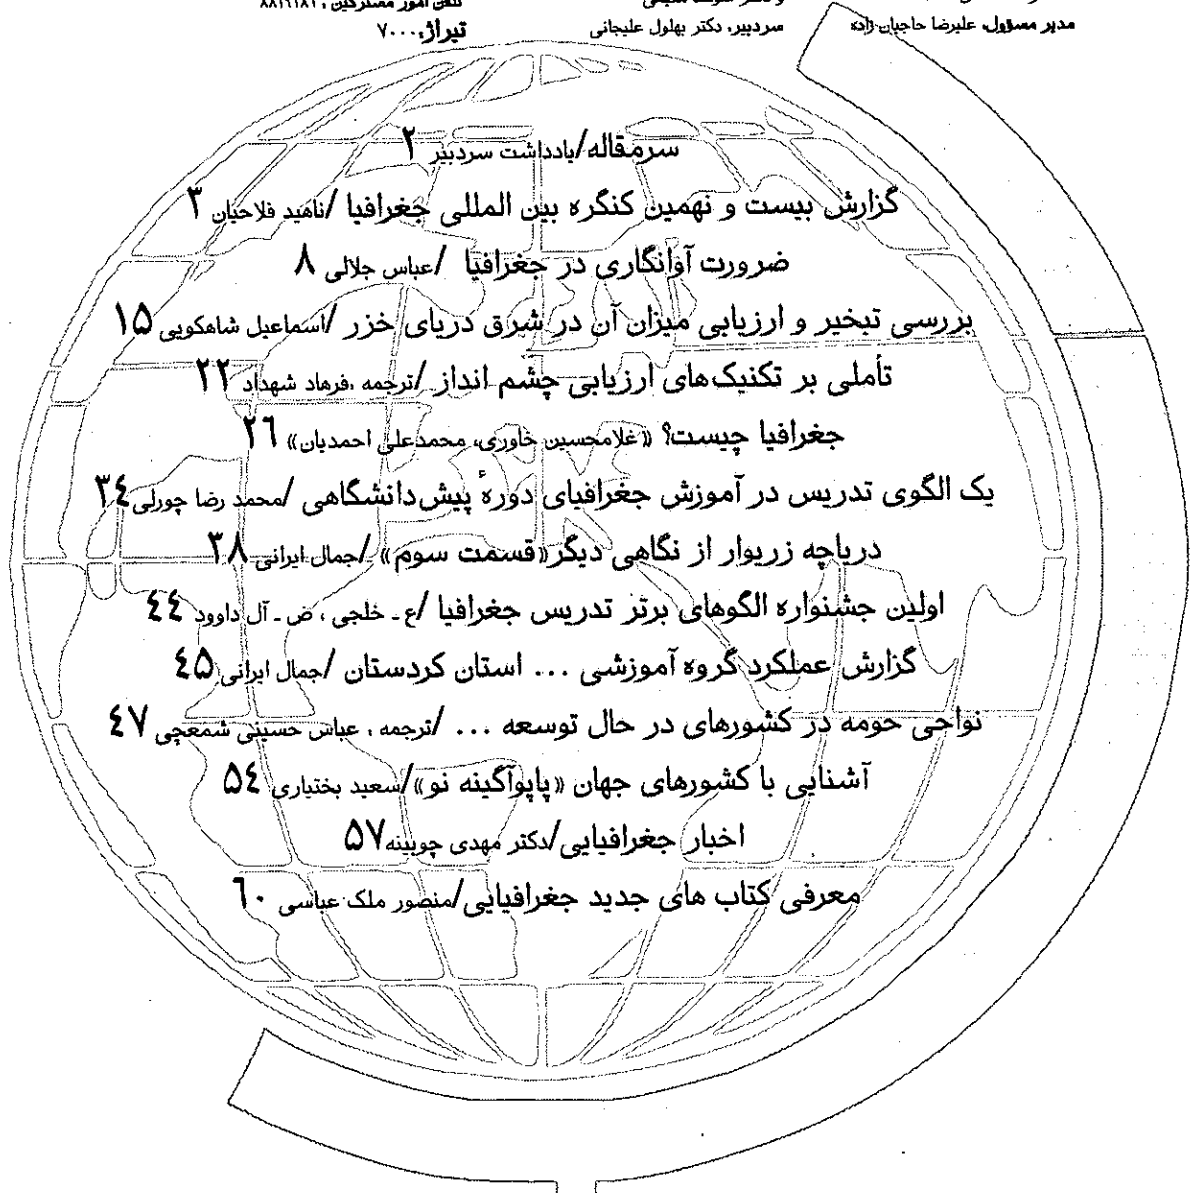 مدیر مسؤول، علیرضا حاجیان زاده
سردبیر، دکتر بهلول علیجانی
تلفن امور مشترکین
تیراژ، ۷۰۰۰
سرمقاله/یادداشت سردبیر ۲
گزارش بیست و نهمین کنگره بین المللی جغرافیا /ناهید فلاحیان ۳
ضرورت آوانگاری در جغرافیا /عباس جلالی ۸
بررسی تبخیر و ارزیابی میزان آن در شرق دریای خزر /اسماعیل شاهکویی ۱۵
تأملی بر تکنیک‌های ارزیابی چشم انداز /ترجمه ،فرهاد شهداد ۲۲
جغرافیا چیست؟ «غلامحسین خاوری، محمدعلی احمدیان» ۲۶
یک الگوی تدریس در آموزش جغرافیای دورهٔ پیش‌دانشگاهی /محمد رضا چورلی ۳۴
دریاچه زریوار از نگاهی دیگر«قسمت سوم» /جمال ایرانی ۳۸
اولین جشنواره الگوهای برتر تدریس جغرافیا /ع ـ خلجی ، ض ـ آل داوود ۴۴
گزارش عملکرد گروه آموزشی ... استان کردستان /جمال ایرانی ۴۵
نواحی حومه در کشورهای در حال توسعه ... /ترجمه ، عباس حسینی شمعچی ۴۷
آشنایی با کشورهای جهان «پاپوآگینه نو»/سعید بختیاری ۵۴
اخبار جغرافیایی/دکتر مهدی چوبینه ۵۷
معرفی کتاب های جدید جغرافیایی/منصور ملک عباسی ۶۰